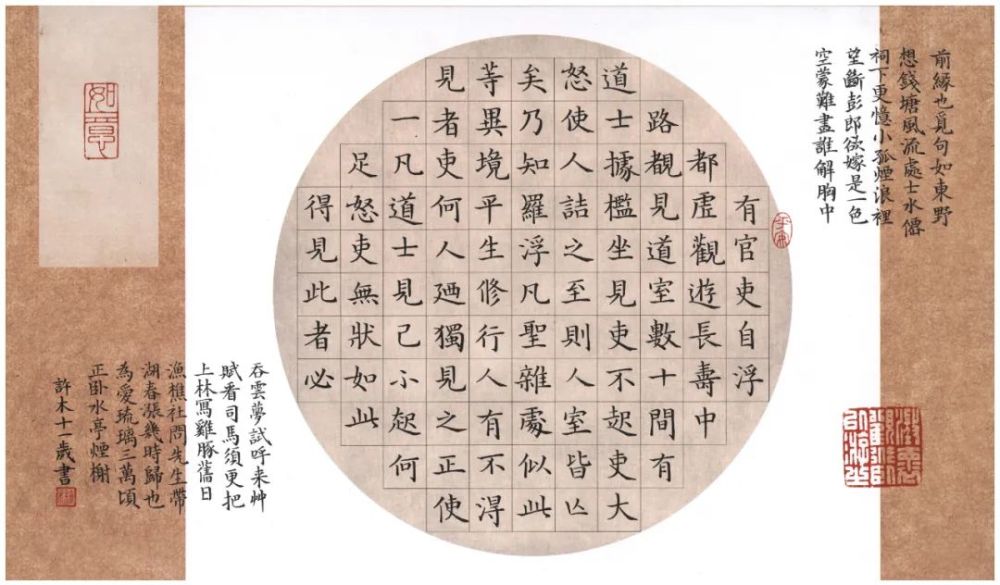 前緣也覓句如東野
想錢塘風流處士水僊
祠下更憶小孤煙浪裡
望斷彭郎欲嫁是一色
空蒙難盡誰解胸中
有官吏自浮
都虛觀遊長壽中
路覩見道室數十間有
道士據檻坐見吏不起吏大
怒使人詰之至則人室皆亾
矣乃知羅浮凡聖雜處似此
等異境平生修行人有不得
見者吏何人迺獨見之正使
一凡道士見己不起何
足怒吏無狀如此
得見此者必
吞雲夢試呼来艸
賦看司馬須更把
上林寫雞豚舊日
漁樵社問先生帶
湖春漲幾時歸也
為愛琉璃三萬頃
正卧水亭煙榭
許木十一歲書
如意